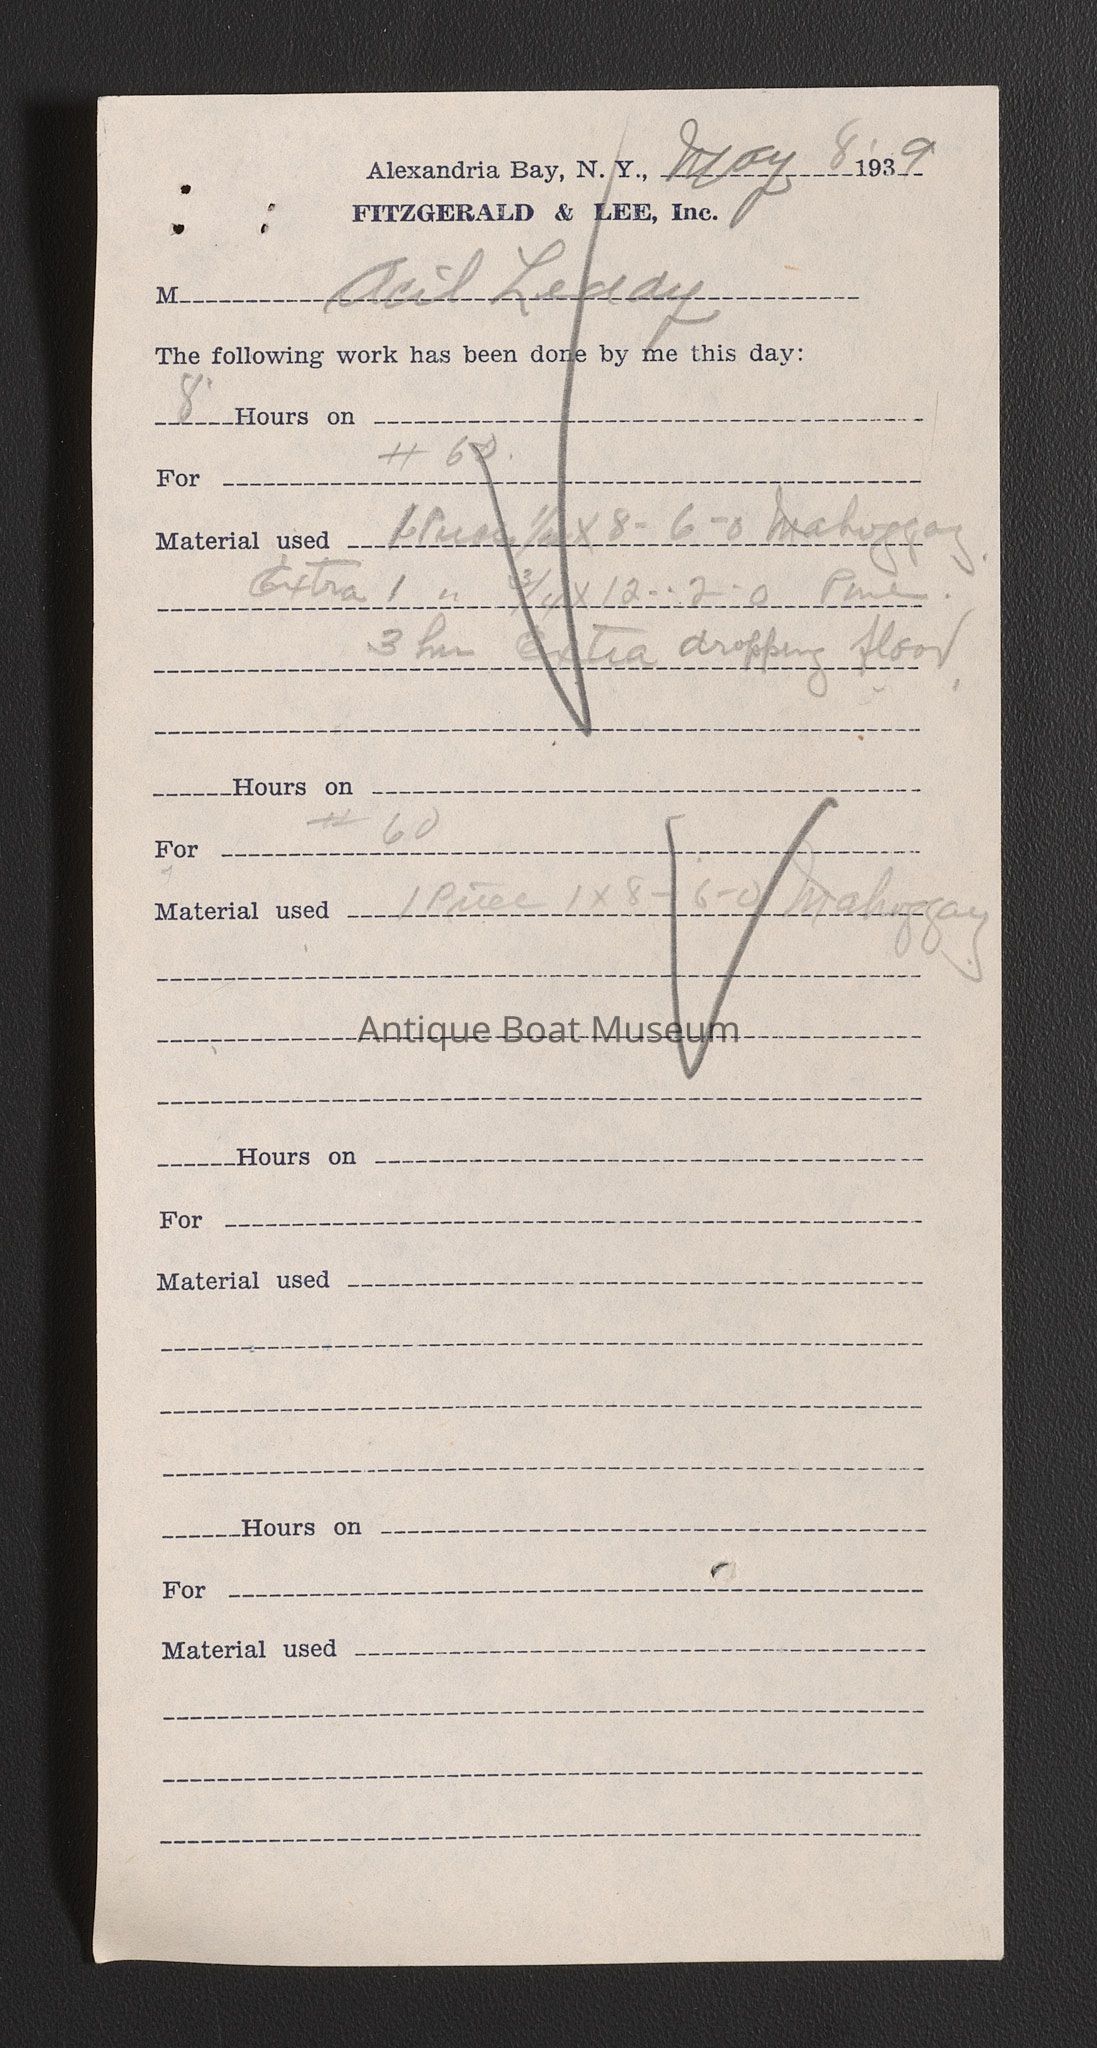 Alexandria Bay, N. Y., May 8 1939
FITZGERALD & LEE, Inc.
M Acil Leddy
The following work has been done by me this day:
8 Hours on
# 60.
For
Material used 1 Piece x 8 - 6-0 Mahoggay.
Extra 1 " 3/4 x 12 - 2-0 Pine.
3 hrs Extra dropping floor
Hours on
# 60
For
Material used 1 Piece 1 x 8 - 6-0 Mahoggay
Antique Boat Museum
Hours on
For
Material used
Hours on
For
Material used